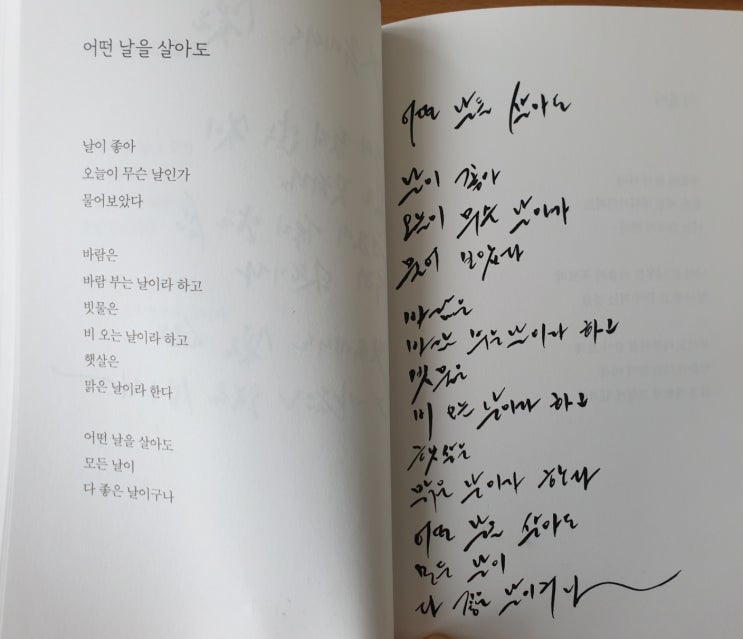 어떤 날을 살아도
날이 좋아
오늘이 무슨 날인가
물어보았다
바람은
바람 부는 날이라 하고
빗물은
비 오는 날이라 하고
햇살은
맑은 날이라 한다
어떤 날을 살아도
모든 날이
다 좋은 날이구나
어떤 날을 살아도
날이 좋아
오늘이 무슨 날인가
물어 보았다
바람은
바람 부는 날이라 하고
빗물은
비 오는 날이라 하고
햇살은
맑은 날이라 한다
어떤 날을 살아도
모든 날이
다 좋은 날이구나